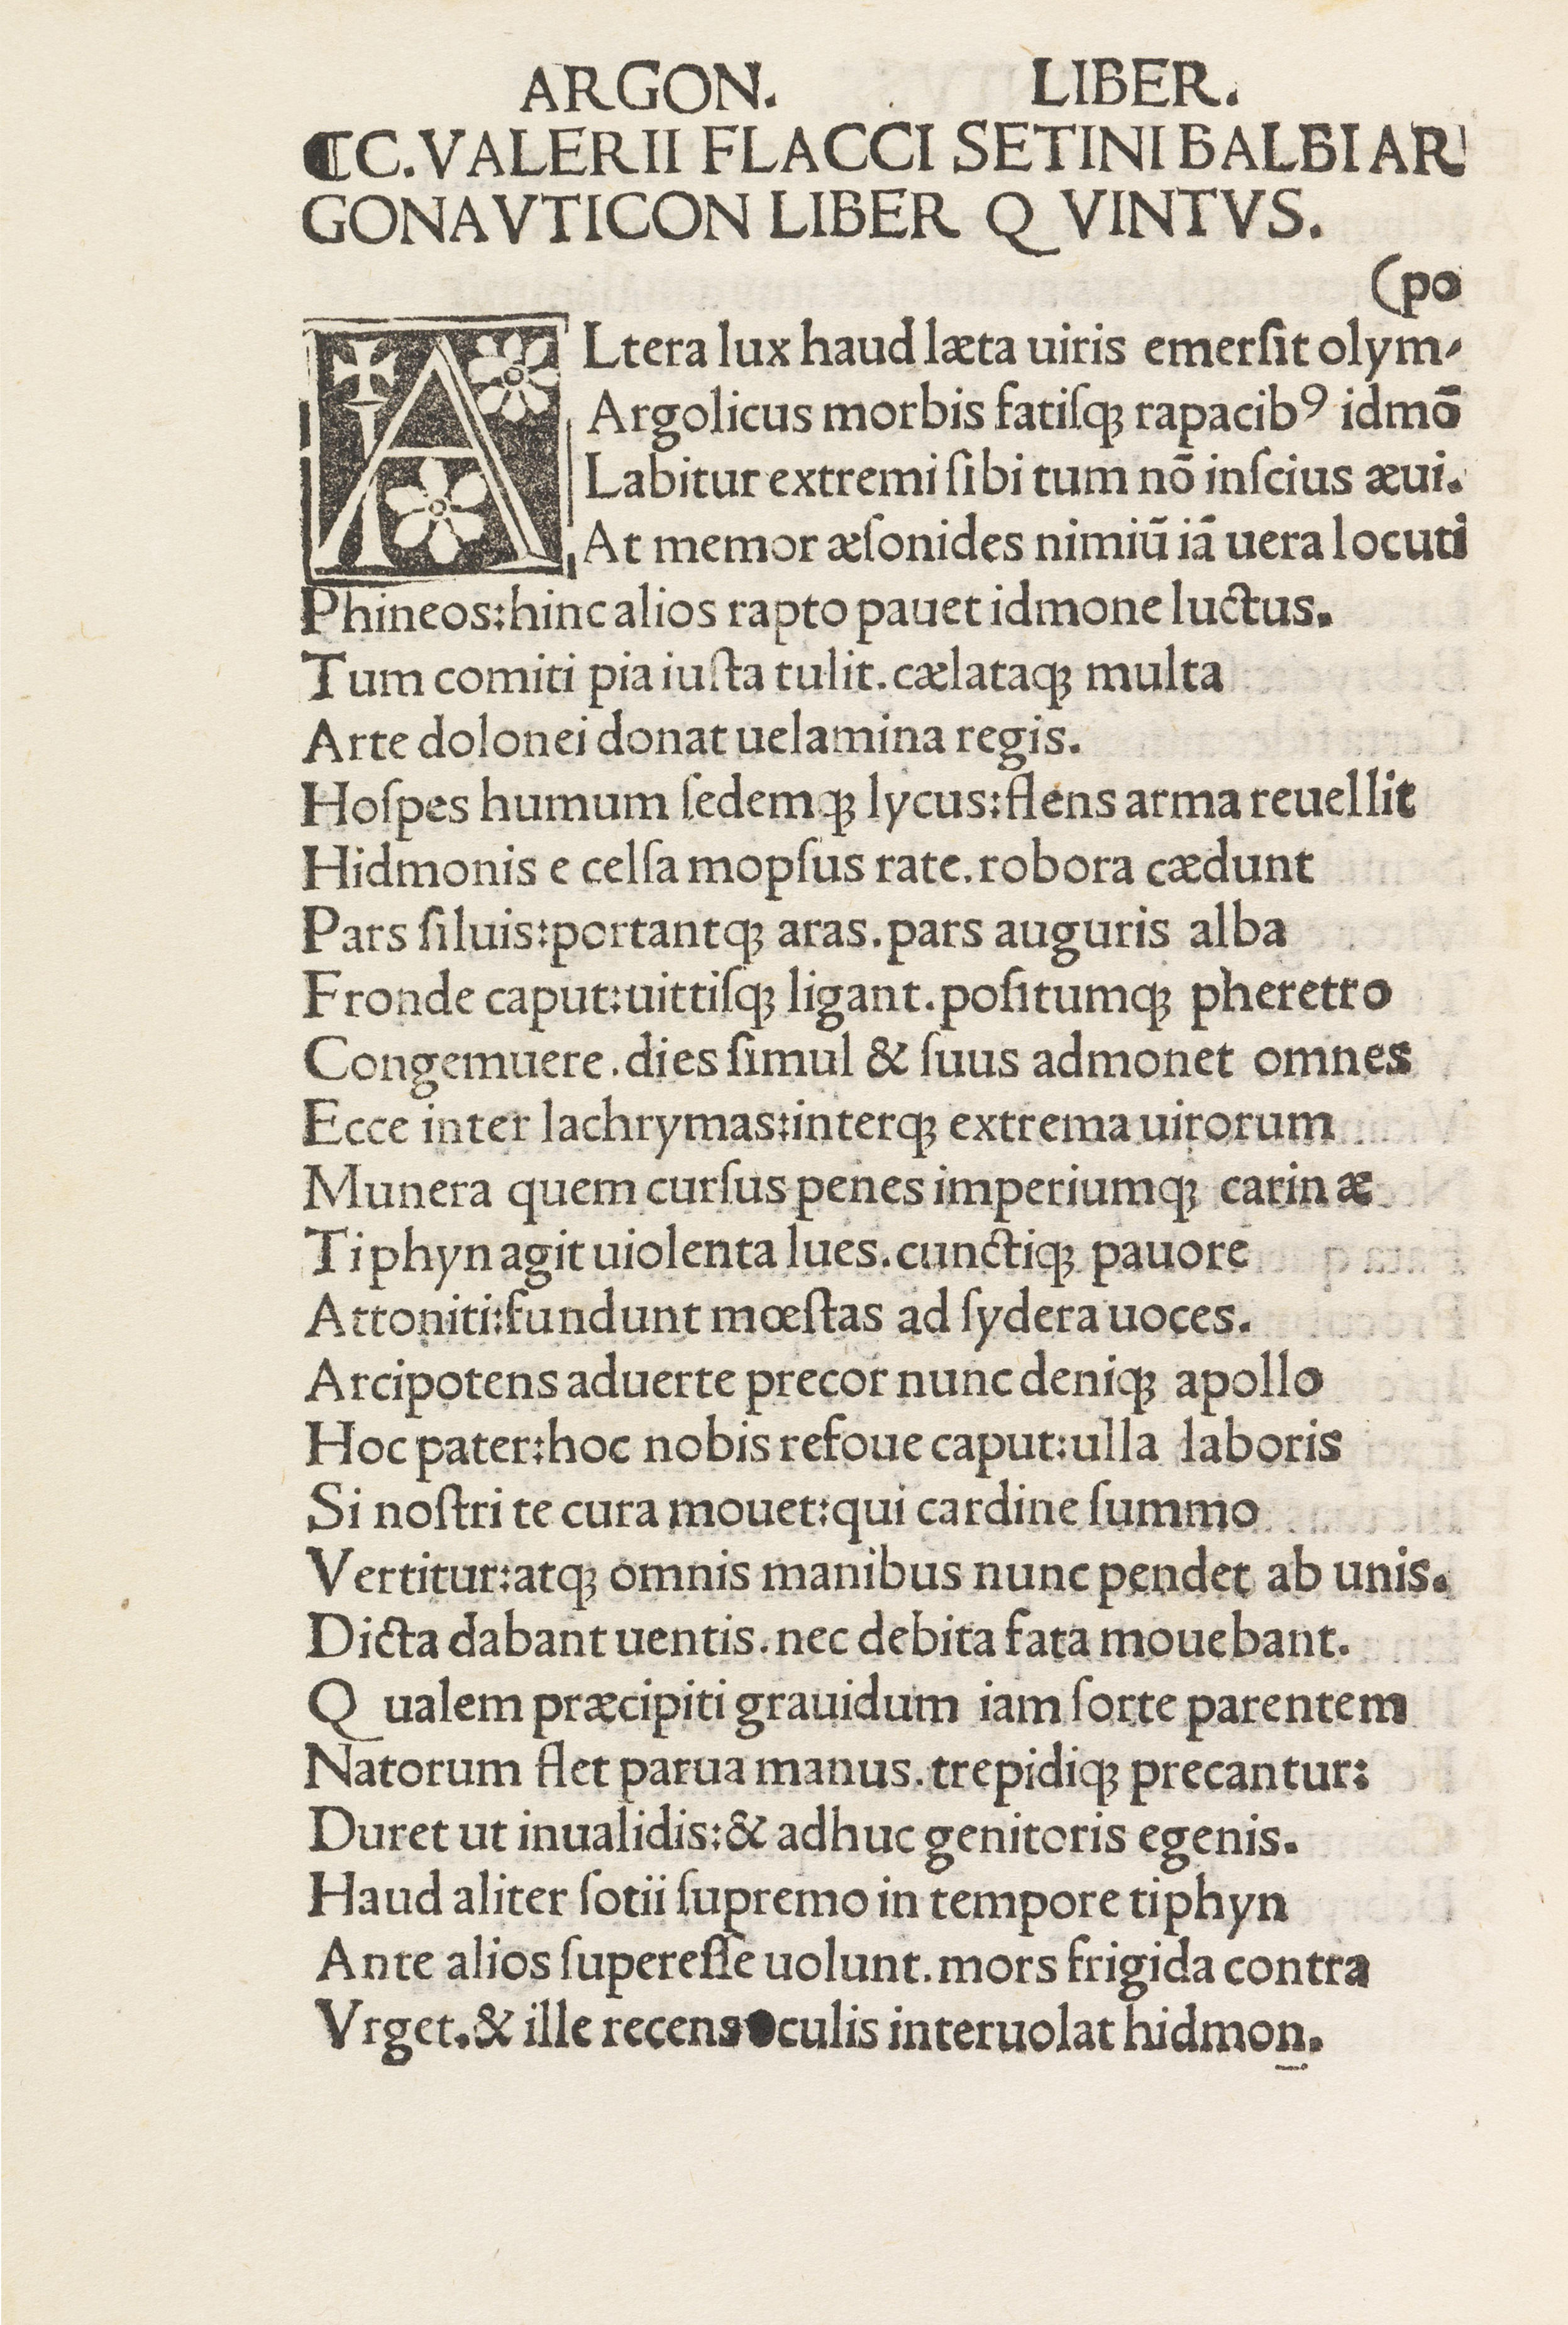 ARGON. LIBER.
⸿C. VALERII FLACCI SETINI BALBI AR
GONAVTICON LIBER QVINTVS.
(po
ALtera lux haud læta uiris emerſit olym-
Argolicus morbis fatiſqꝫ rapacibꝰ idmō
Labitur extremi ſibi tum nō inſcius æui.
At memor æſonides nimiū iā uera locuti
Phineos:hinc alios rapto pauet idmone luctus.
Tum comiti pia iuſta tulit. cælataqꝫ multa
Arte dolonei donat uelamina regis.
Hoſpes humum ſedemqꝫ lycus:flens arma reuellit
Hidmonis e celſa mopſus rate. robora cædunt
Pars ſiluis:portantqꝫ aras. pars auguris alba
Fronde caput:uittiſqꝫ ligant. poſitumqꝫ pheretro
Congemuere. dies ſimul & ſuus admonet omnes
Ecce inter lachrymas:interqꝫ extrema uirorum
Munera quem curſus penes imperiumqꝫ carinæ
Tiphyn agit uiolenta lues. cunctiqꝫ pauore
Attoniti:fundunt mœſtas ad ſydera uoces.
Arcipotens aduerte precor nunc deniqꝫ apollo
Hoc pater:hoc nobis refoue caput:ulla laboris
Si noſtri te cura mouet:qui cardine ſummo
Vertitur:atqꝫ omnis manibus nunc pendet ab unis.
Dicta dabant uentis. nec debita fata mouebant.
Qualem præcipiti grauidum iam ſorte parentem
Natorum flet parua manus. trepidiqꝫ precantur:
Duret ut inualidis:& adhuc genitoris egenis.
Haud aliter ſotii ſupremo in tempore tiphyn
Ante alios ſupereſſe uolunt. mors frigida contra
Vrget. & ille recens oculis interuolat hidmon.